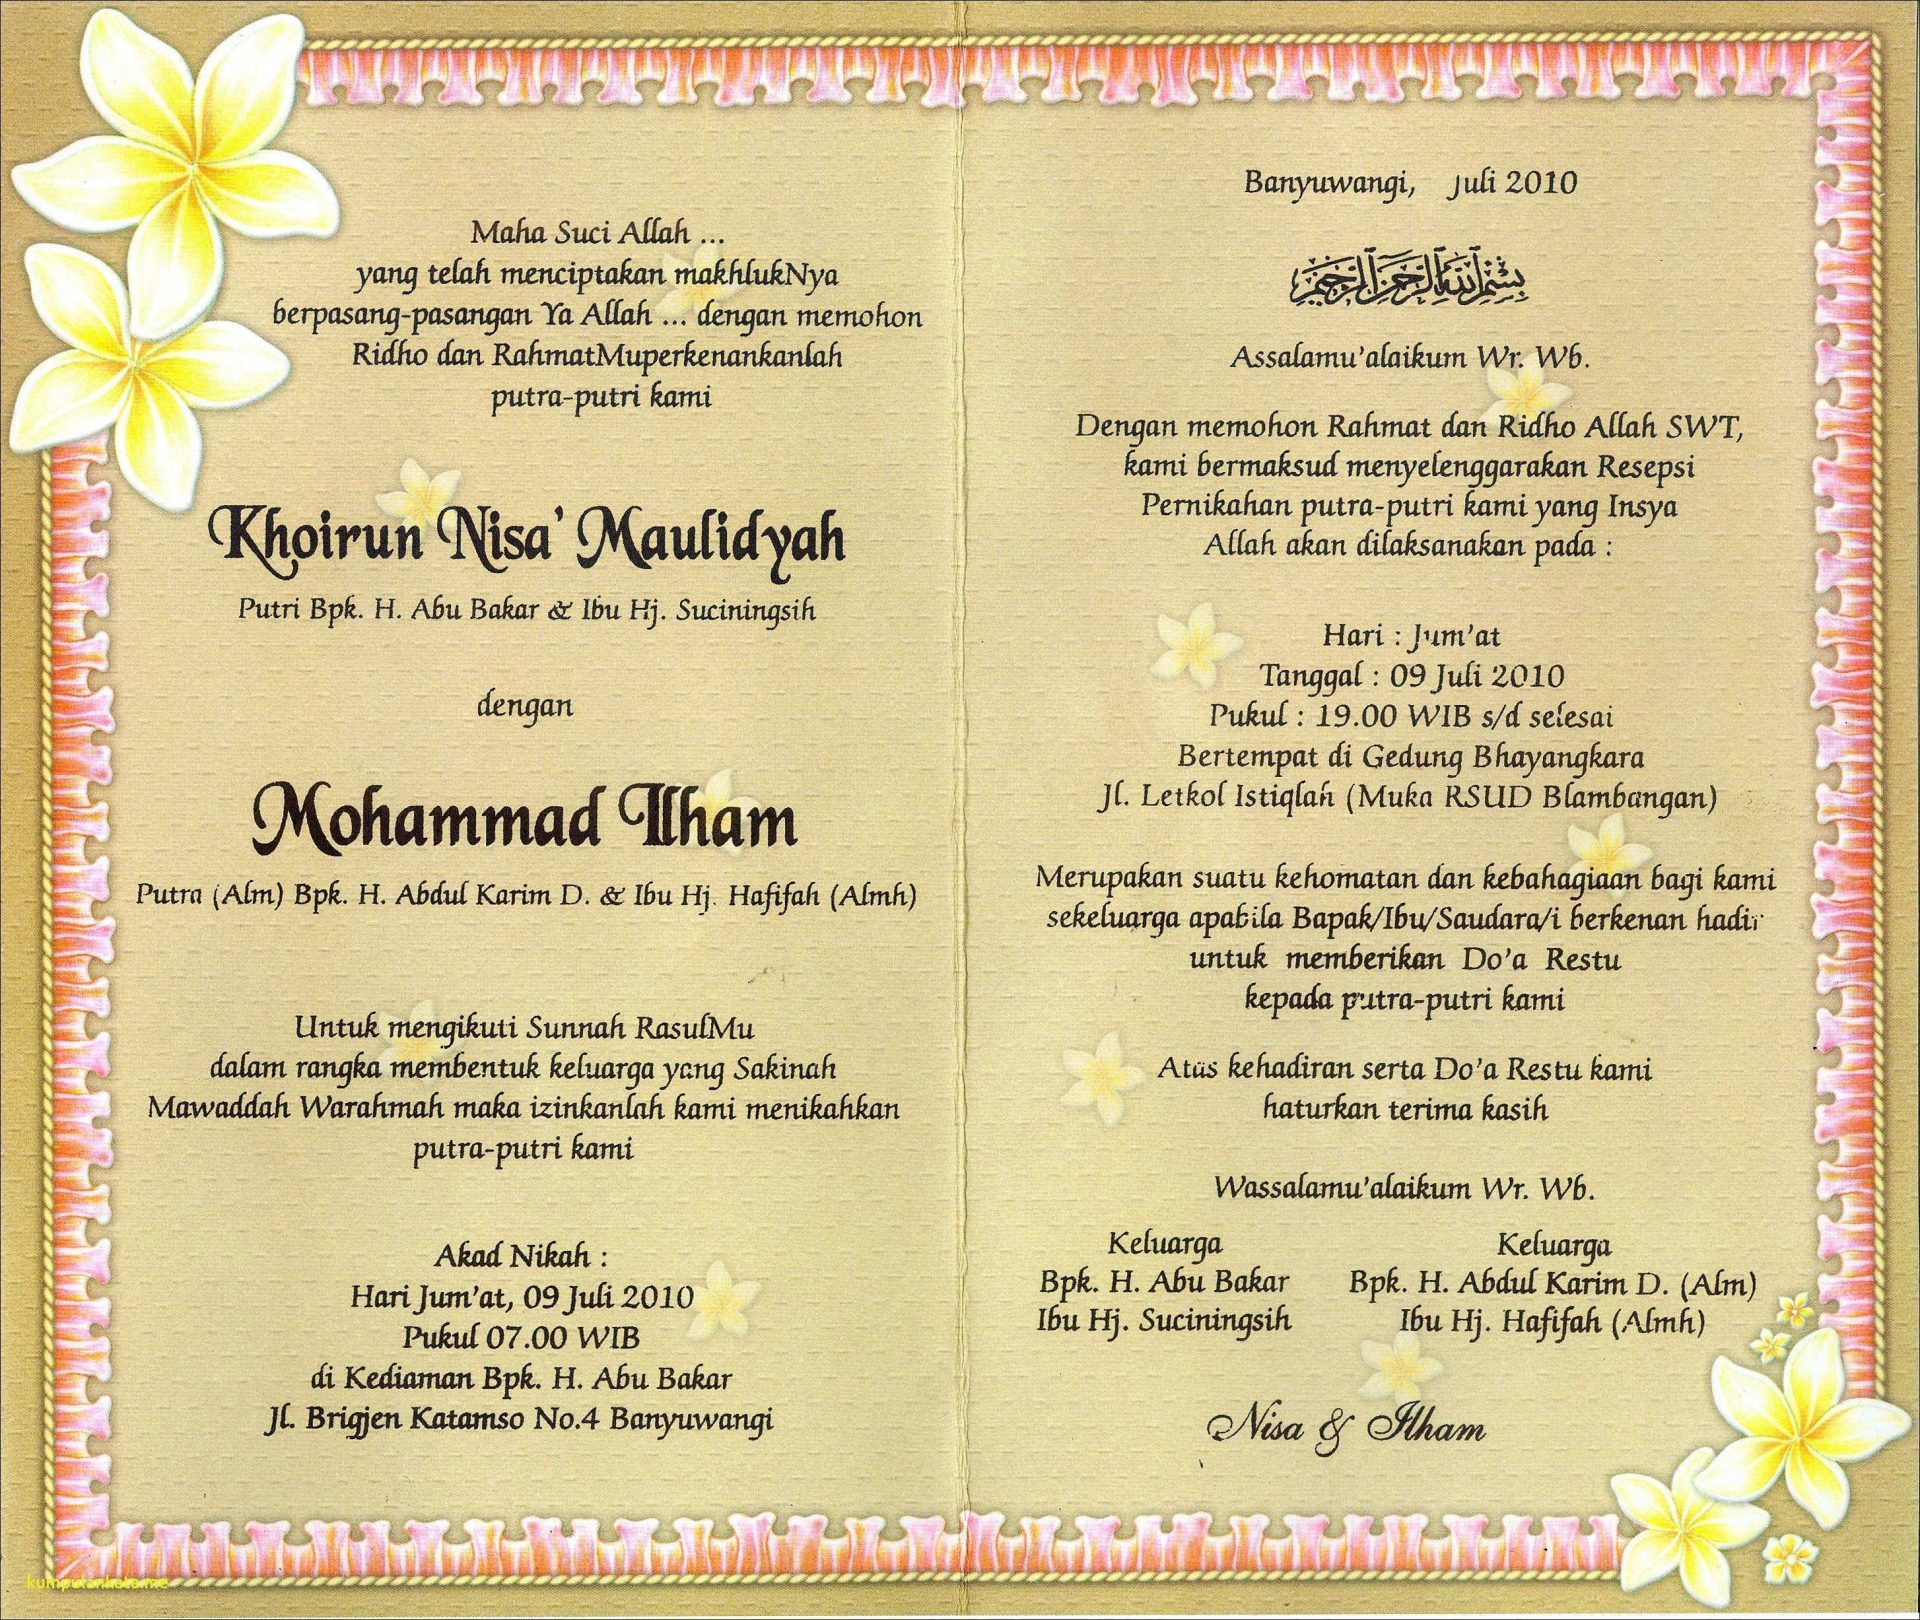 Maha Suci Allah ...
yang telah menciptakan makhlukNya
berpasang-pasangan Ya Allah ... dengan memohon
Ridho dan RahmatMuperkenankanlah
putra-putri kami
Khoirun Nisa' Maulidyah
Putri Bpk. H. Abu Bakar & Ibu Hj. Suciningsih
dengan
Mohammad Ilham
Putra (Alm) Bpk. H. Abdul Karim D. & Ibu Hj. Hafifah (Almh)
Untuk mengikuti Sunnah RasulMu
dalam rangka membentuk keluarga yang Sakinah
Mawaddah Warahmah maka izinkanlah kami menikahkan
putra-putri kami
Akad Nikah :
Hari Jum'at, 09 Juli 2010
Pukul 07.00 WIB
di Kediaman Bpk. H. Abu Bakar
Jl. Brigjen Katamso No.4 Banyuwangi
Banyuwangi, Juli 2010
بسم الله الرحمن الرحيم
Assalamu'alaikum Wr. Wb.
Dengan memohon Rahmat dan Ridho Allah SWT,
kami bermaksud menyelenggarakan Resepsi
Pernikahan putra-putri kami yang Insya
Allah akan dilaksanakan pada :
Hari : Jum'at
Tanggal : 09 Juli 2010
Pukul : 19.00 WIB s/d selesai
Bertempat di Gedung Bhayangkara
Jl. Letkol Istiqlah (Muka RSUD Blambangan)
Merupakan suatu kehomatan dan kebahagiaan bagi kami
sekeluarga apabila Bapak/Ibu/Saudara/i berkenan hadir
untuk memberikan Do'a Restu
kepada putra-putri kami
Atas kehadiran serta Do'a Restu kami
haturkan terima kasih
Wassalamu'alaikum Wr. Wb.
Keluarga
Bpk. H. Abu Bakar
Ibu Hj. Suciningsih
Keluarga
Bpk. H. Abdul Karim D. (Alm)
Ibu Hj. Hafifah (Almh)
Nisa & Ilham
kumpulankata.me